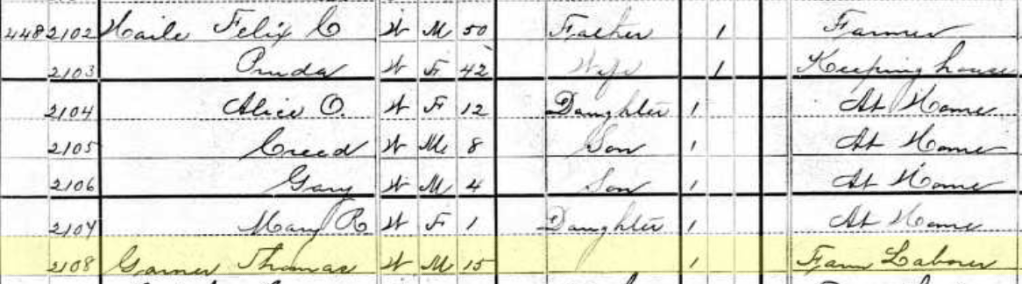 448 2102 Haile Felix C W M 50 Father 1 Farmer
2103 Pruda W F 42 Wife 1 Keeping house
2104 Alice O. W F 12 Daughter 1 At Home
2105 Creed W M 8 Son 1 At Home
2106 Gary W M 4 Son 1 At Home
2107 Mary R W F 1 Daughter 1 At Home
2108 Garner Thomas W M 15 1 Farm Laborer